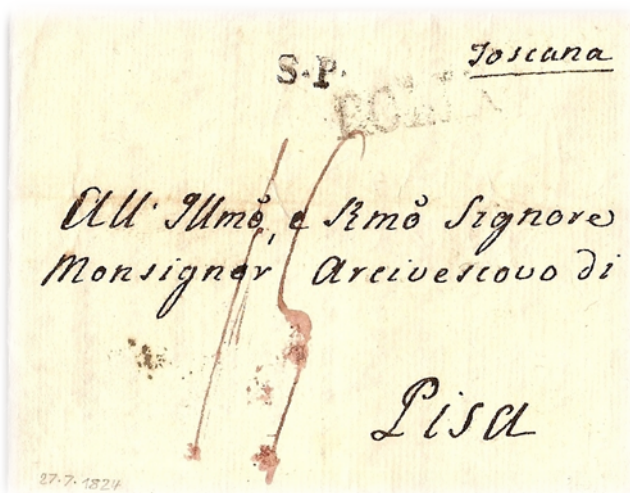 Toscana
S·P·
ROMA
All' Illmo, e Rmo Signore
Monsignor Arcivescovo di
Pisa
27·7·1824